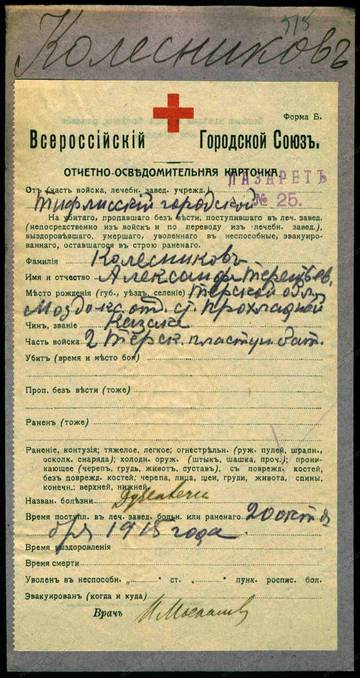 518
Колесниковъ
Форма Б.
Всероссійскій Городской Союзъ.
ОТЧЕТНО-ОСВѢДОМИТЕЛЬНАЯ КАРТОЧКА
ЛАЗАРЕТЪ
Отъ (часть войска, лечебн. завед. учрежд.)
№ 25.
Тифлисскій городской
На убитаго, пропавшаго безъ вѣсти, поступившаго въ леч. завед.
(непосредственно изъ войскъ и по переводу изъ лечебн. завед.),
выздоровѣвшаго, умершаго, уволеннаго въ неспособные, эвакуиро-
ваннаго, оставшагося въ строю раненаго.
Фамилія Колесниковъ
Имя и отчество Александръ Терентьев.
Мѣсто рожденія (губ., уѣздъ, селеніе) Терской обл.
Моздокск. отд. ст. Прохладной
Чинъ, званіе Казакъ
Часть войска 2 Терск. пластун. бат.
Убитъ (время и мѣсто боя)
Проп. безъ вѣсти (тоже)
Раненъ (тоже)
Раненіе, контузія; тяжелое, легкое; огнестрѣльн. (руж. пулей, шрапн.,
осколк. снаряда); холодн. оруж. (штыкъ, шашка, проч.); прони-
кающее (черепъ, грудь, животъ, суставъ), съ поврежд. костей,
безъ поврежд. костей; черепа, лица, шеи, груди, живота, спины,
конечн.: верхней, нижней.
Назван. болѣзни
Время поступл. въ леч. завед. больн. или раненаго 20 октя
бря 1915 года
Время выздоровленія
Время смерти
Уволенъ въ неспособн. „ “ ст. „ “ пунк. роспис. бол.
Эвакуированъ (когда и куда)
Врачъ